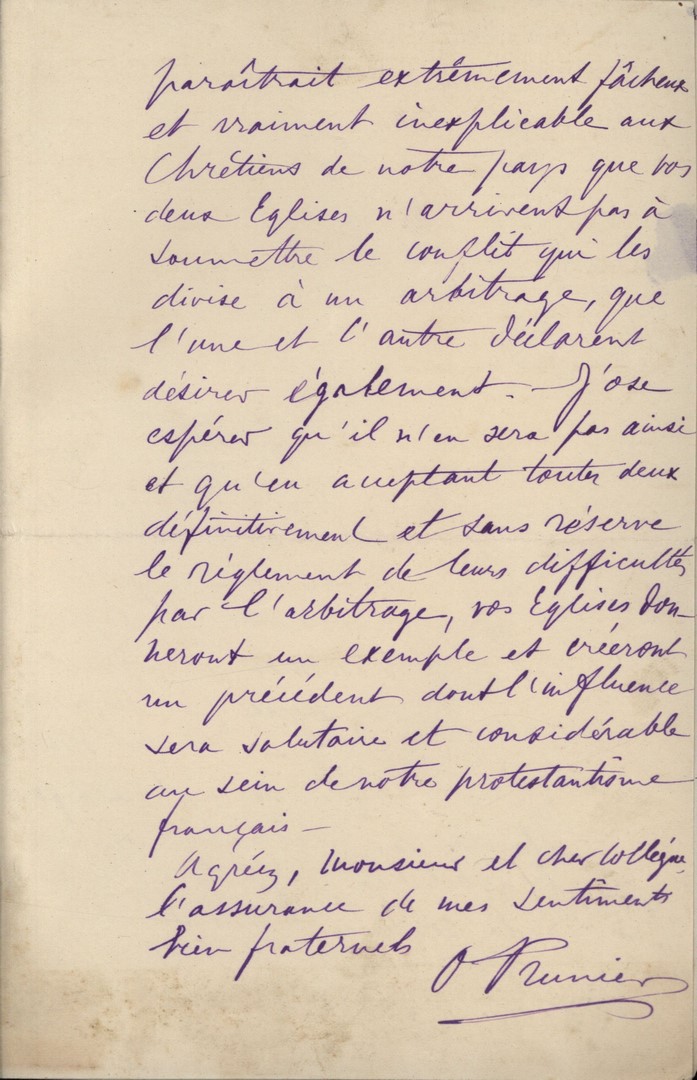 paraîtrait extrêmement fâcheux
et vraiment inexplicable aux
Chrétiens de notre pays que vos
deux Eglises n'arrivent pas à
soumettre le conflit qui les
divise à un arbitrage, que
l'une et l'autre déclarent
désirer également. — J'ose
espérer qu'il n'en sera pas ainsi
et qu'en acceptant toutes deux
définitivement et sans réserve
le réglement de leurs difficultés
par l'arbitrage, vos Eglises don-
neront un exemple et créeront
un précédent dont l'influence
sera salutaire et considérable
au sein de notre protestantisme
français —
Agréez, Monsieur et cher Collègue,
l'assurance de mes sentiments
bien fraternels
O Prunier